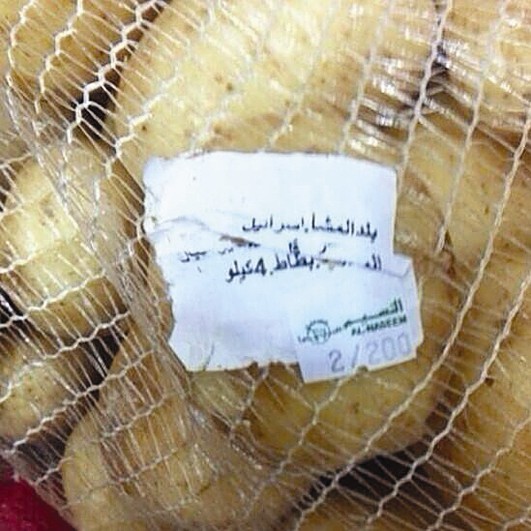 بلد المنشأ.اسرائيل
بطاط.4كيلو
النسيم
AL-NASEEM
2/200